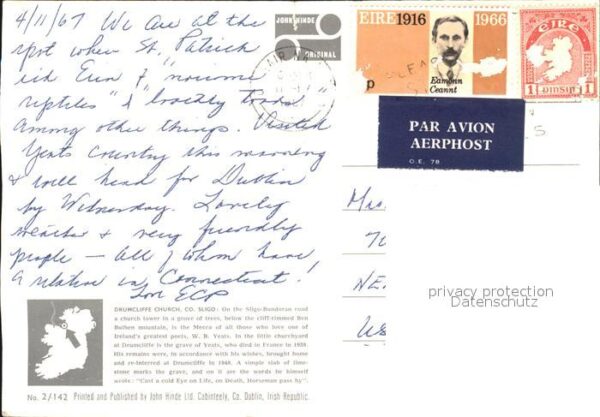 4/11/67 We are at the
spot when St. Patrick
rid Erin of "noxious
reptiles" & locally
among other things. Visited
Yeats Country this morning
& will head for Dublin
by Wednesday. Lovely
weather & very friendly
people — all of whom have
a relation in Connecticut!
ECP
JOHN HINDE
ORIGINAL
EIRE 1916 1966
p
Eamonn
Ceannt
EIRE
1 PINSIN 1
PAR AVION
AERPHOST
O.E. 78
privacy protection
Datenschutz
DRUMCLIFFE CHURCH, CO. SLIGO: On the Sligo-Bundoran road
a church tower in a grove of trees, below the cliff-rimmed Ben
Bulben mountain, is the Mecca of all those who love one of
Ireland's greatest poets, W. B. Yeats. In the little churchyard
at Drumcliffe is the grave of Yeats, who died in France in 1939.
His remains were, in accordance with his wishes, brought home
and re-interred at Drumcliffe in 1948. A simple slab of lime-
stone marks the grave, and on it are the words he himself
wrote: "Cast a cold Eye on Life, on Death, Horseman pass by".
No. 2/142 Printed and Published by John Hinde Ltd. Cabinteely, Co. Dublin, Irish Republic.